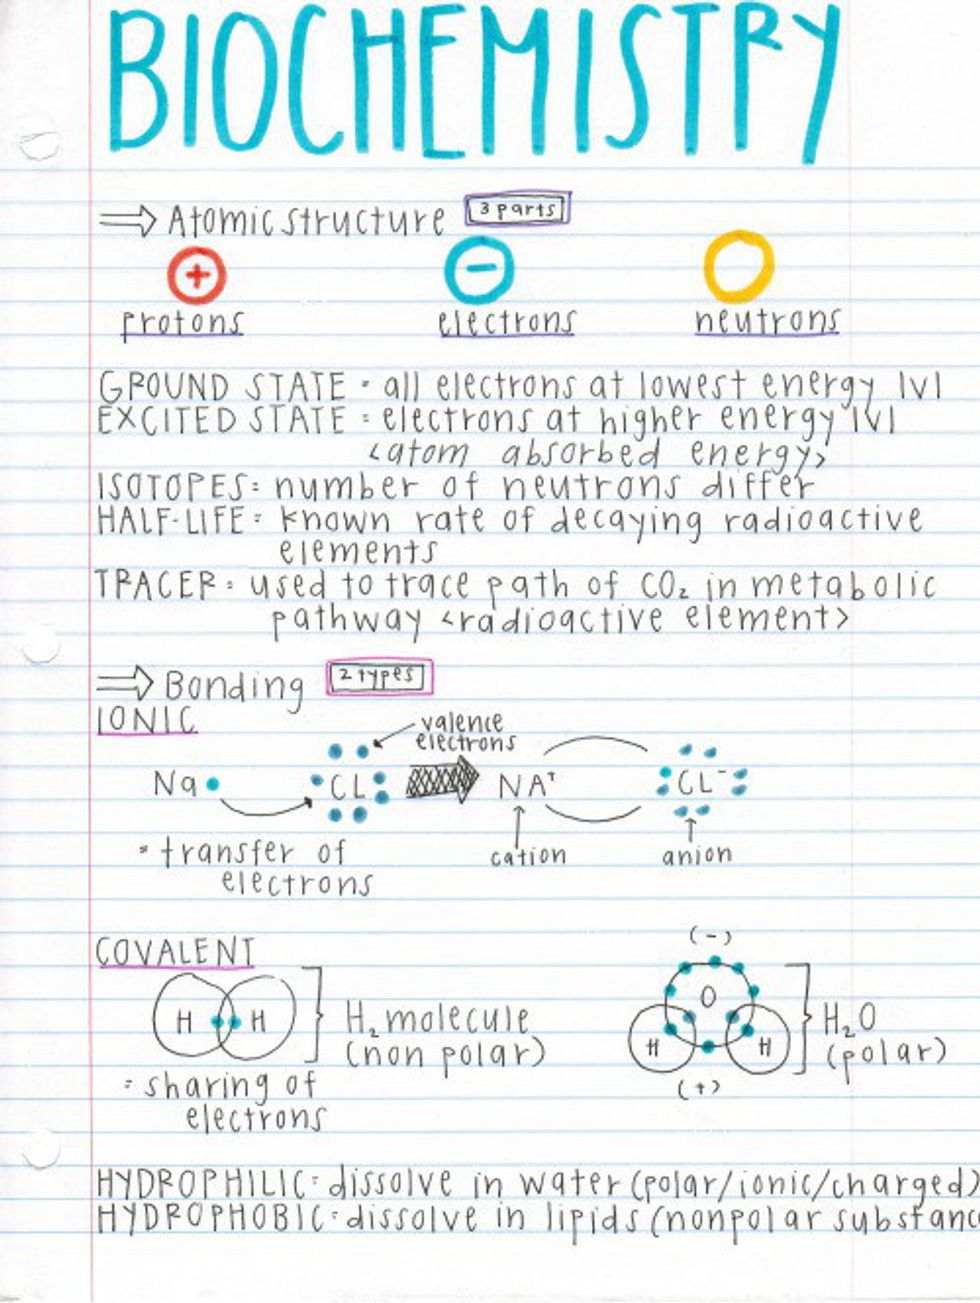 BIOCHEMISTRY
⇒ Atomic structure 3 parts
+ − 
protons electrons neutrons
GROUND STATE = all electrons at lowest energy lvl
EXCITED STATE = electrons at higher energy lvl
<atom absorbed energy>
ISOTOPES = number of neutrons differ
HALF-LIFE = known rate of decaying radioactive
elements
TRACER = used to trace path of CO₂ in metabolic
pathway <radioactive element>
⇒ Bonding 2 types
IONIC
valence
electrons
Na CL NA⁺ CL⁻
= transfer of
electrons
cation anion
COVALENT
(-)
H H
H₂ molecule
(non polar)
O
H H
H₂O
(polar)
(+)
= sharing of
electrons
HYDROPHILIC = dissolve in water (polar/ionic/charged)
HYDROPHOBIC = dissolve in lipids (nonpolar substanc